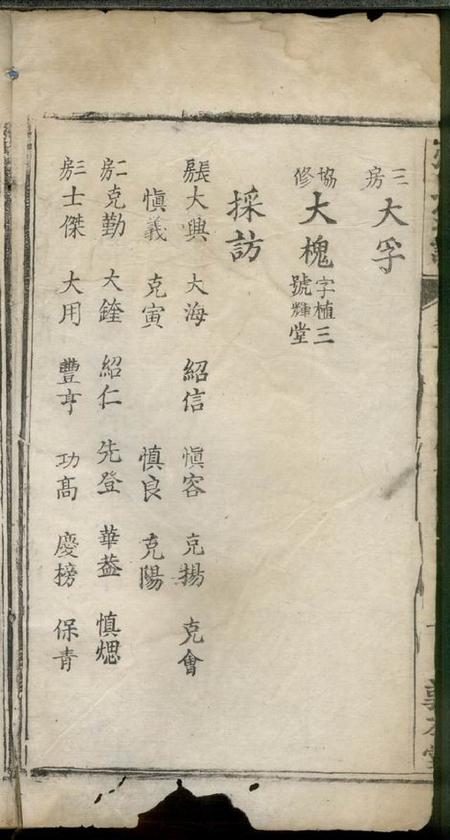 三房大孚
協修大槐字植三號輝堂
採訪
長房大興 大海 紹信 愼容 克揚 克會
愼義 克寅 慎良 克陽
二房克勤 大鍷 紹仁 先登 華葢 慎煾
三房士傑 大用 豐亨 功高 慶榜 保青